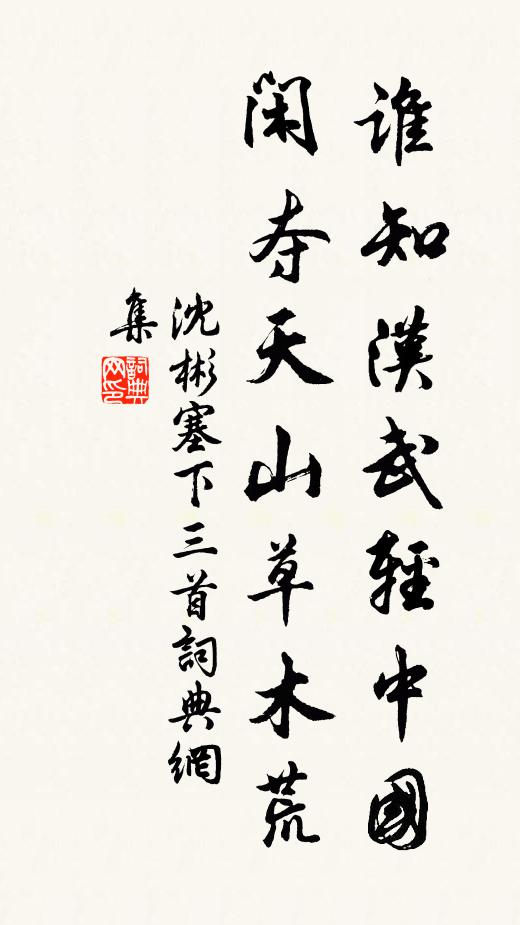 誰知漢武輕中國
閑夺天山草木荒
沈彬塞下三首詞典網
集
詞典
网印